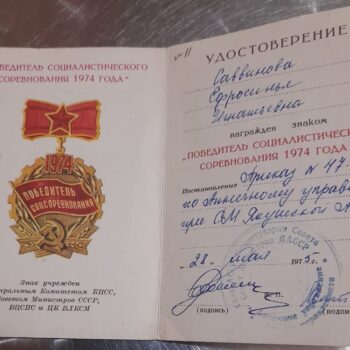 ПОБЕДИТЕЛЬ СОЦИАЛИСТИЧЕСКОГО
СОРЕВНОВАНИЯ 1974 ГОДА"
1974
ПОБЕДИТЕЛЬ
СОЦСОРЕВНОВАНИЯ
Знак учрежден
Центральным Комитетом КПСС,
Советом Министров СССР,
ВЦСПС и ЦК ВЛКСМ
№ 11
УДОСТОВЕРЕНИЕ
Саввинова
Ефросинья
Игнатьевна
награжден знаком
"ПОБЕДИТЕЛЬ СОЦИАЛИСТИЧЕСКОГО
СОРЕВНОВАНИЯ 1974 ГОДА
Постановление Приказ № 47
по управ
при СМ Якутской А
"28" мая 1975г.
М. П.
(подпись) (подпись)